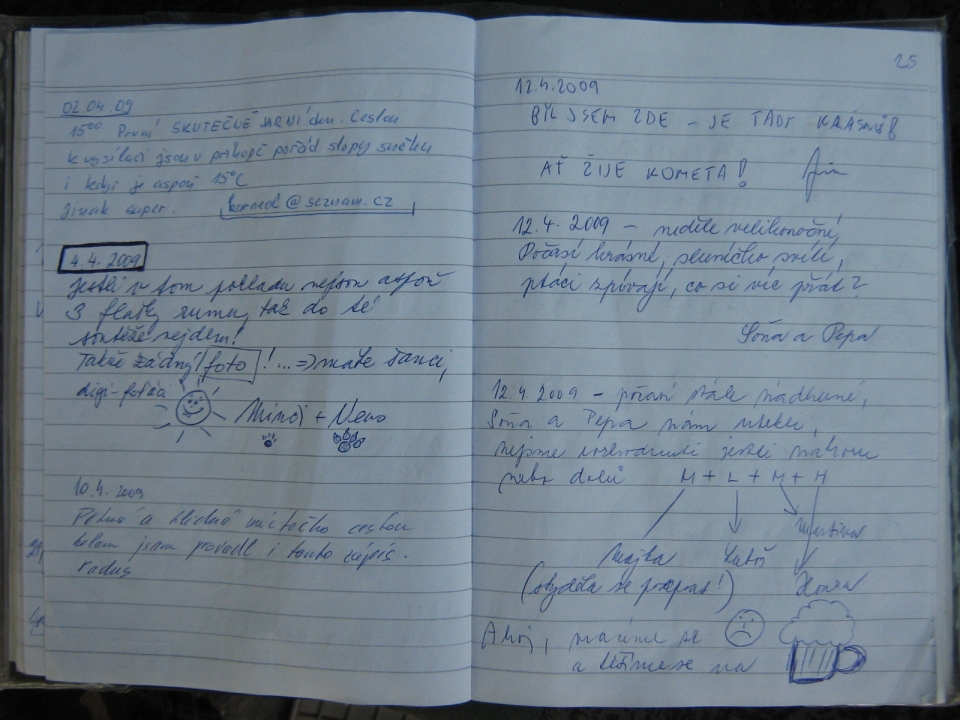 02.04.09
15⁰⁰ První SKUTEČNĚ JARNÍ den. Cestou
k vysílači jsou v příkopě pořád stopy sněhu
i když je aspoň 15°C
Jinak super. korned@seznam.cz
4.4.2009
jestli v tom pokladu nejsou aspoň
3 flašky rumu, tak do té
soutěže nejdem!
Takže žádný foto! ... => máte šanci,
digi-foťáci
Minci + Vevo
10.4.2009
Pěkné a klidné místečko cestou
kolem jsem provedl i touto zápis.
radus
25
12.4.2009
BYL JSEM ZDE – JE TADY KRÁSNĚ!
AŤ ŽIJE KOMETA! Jin
12.4.2009 – neděle velikonoční,
Počasí krásné, sluníčko svítí,
ptáci zpívají, co si víc přát?
Soňa a Pepa
12.4.2009 – počasí stále nádherné,
Soňa a Pepa nám utekli,
nejsme rozhodnuti jestli nahoru
nebo dolů M + L + M + H
Martina
Majka Luboš
(styděla se přepas!) Hana
Ahoj, máme se
a těšíme se na